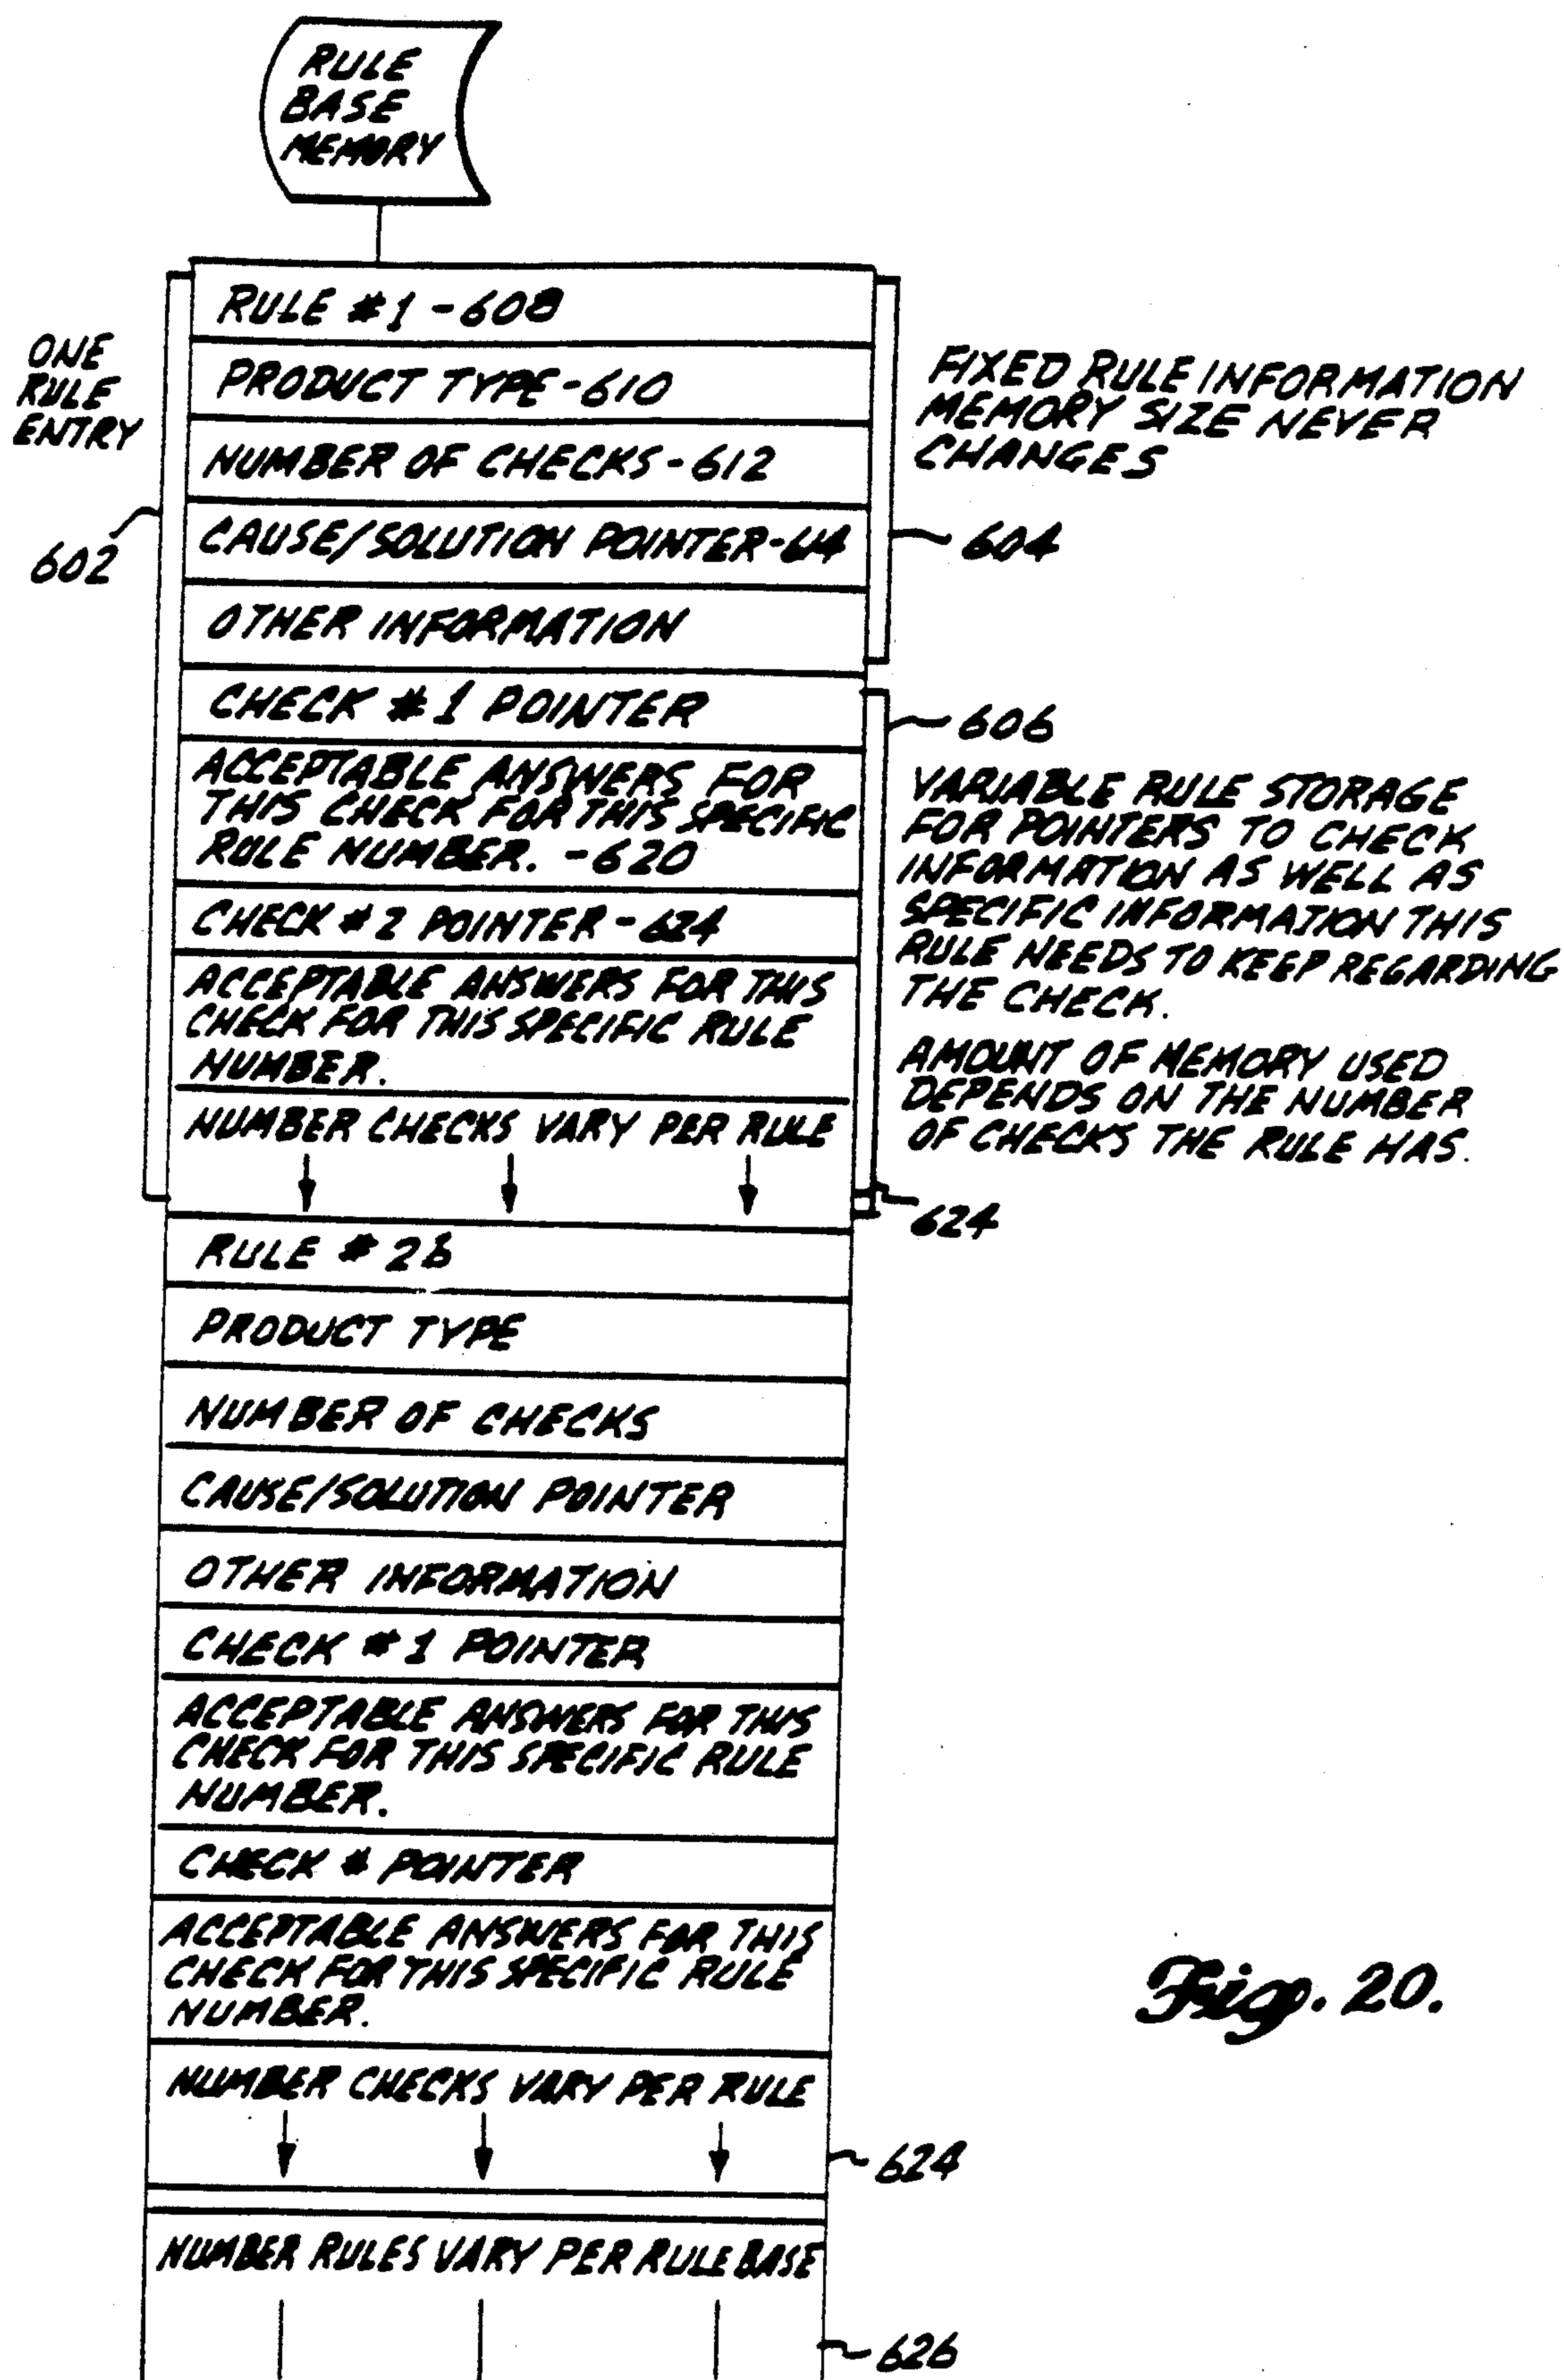 RULE
BASE
MEMORY
ONE
RULE
ENTRY
602
RULE #1 - 608
PRODUCT TYPE - 610
NUMBER OF CHECKS - 612
CAUSE/SOLUTION POINTER - 614
OTHER INFORMATION
FIXED RULE INFORMATION
MEMORY SIZE NEVER
CHANGES
604
CHECK #1 POINTER
606
ACCEPTABLE ANSWERS FOR
THIS CHECK FOR THIS SPECIFIC
RULE NUMBER. - 620
CHECK #2 POINTER - 624
ACCEPTABLE ANSWERS FOR THIS
CHECK FOR THIS SPECIFIC RULE
NUMBER.
NUMBER CHECKS VARY PER RULE
VARIABLE RULE STORAGE
FOR POINTERS TO CHECK
INFORMATION AS WELL AS
SPECIFIC INFORMATION THIS
RULE NEEDS TO KEEP REGARDING
THE CHECK.
AMOUNT OF MEMORY USED
DEPENDS ON THE NUMBER
OF CHECKS THE RULE HAS.
624
RULE # 26
PRODUCT TYPE
NUMBER OF CHECKS
CAUSE/SOLUTION POINTER
OTHER INFORMATION
CHECK #1 POINTER
ACCEPTABLE ANSWERS FOR THIS
CHECK FOR THIS SPECIFIC RULE
NUMBER.
CHECK # POINTER
ACCEPTABLE ANSWERS FOR THIS
CHECK FOR THIS SPECIFIC RULE
NUMBER.
NUMBER CHECKS VARY PER RULE
624
NUMBER RULES VARY PER RULE BASE
626
Fig. 20.